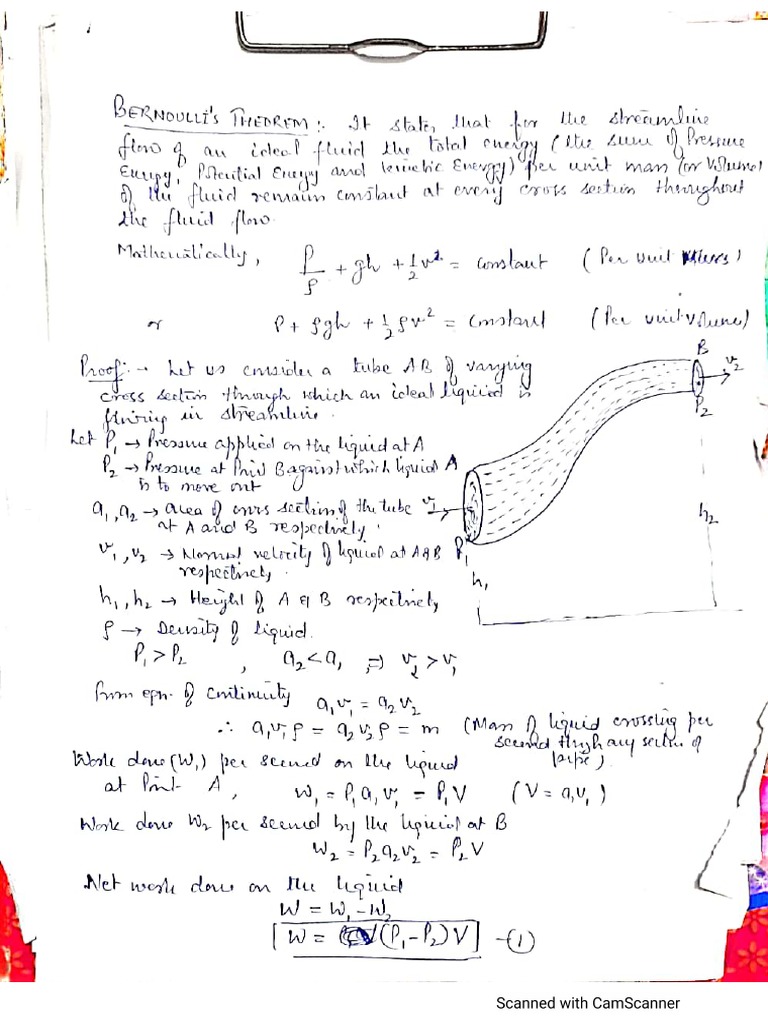 BERNOULLI'S THEOREM:- It states that for the streamline
flow of an ideal fluid the total energy (the sum of Pressure
Energy, Potential Energy and kinetic Energy) per unit mass (or Volume)
of the fluid remain constant at every cross section throughout
the fluid flow.
Mathematically, P/ρ + gh + 1/2 v² = constant (Per unit Mass)
or P + ρgh + 1/2 ρv² = constant (Per unit volume)
Proof:- Let us consider a tube AB of varying
cross section through which an ideal liquid is
flowing in streamline.
Let P₁ → Pressure applied on the liquid at A
P₂ → Pressure at Point B against which liquid
is to move out
a₁, a₂ → area of cross section of the tube
at A and B respectively.
v₁, v₂ → Normal velocity of liquid at A & B
respectively.
h₁, h₂ → Height of A & B respectively
ρ → Density of liquid.
P₁ > P₂ , a₂ < a₁ ⇒ v₂ > v₁
B
v₂
P₂
A
v₁
P₁
h₁
h₂
from eqn. of continuity a₁v₁ = a₂v₂
∴ a₁v₁ρ = a₂v₂ρ = m (Mass of liquid crossing per
second through any section of
pipe)
Work done (W₁) per second on the liquid
at Point A, W₁ = P₁a₁v₁ = P₁V (V = a₁v₁)
Work done W₂ per second by the liquid at B
W₂ = P₂a₂v₂ = P₂V
Net work done on the liquid
W = W₁ - W₂
[W = (P₁-P₂)V] -(1)
Scanned with CamScanner